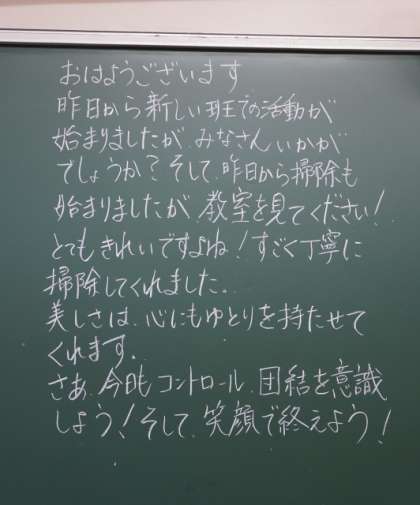 おはようございます
昨日から新しい班での活動が
始まりましたが、みなさんいかが
でしょうか?そして、昨日から掃除も
始まりましたが、教室を見てください!
とてもきれいですよね!すごく丁寧に
掃除してくれました。
美しさは、心にもゆとりを持たせて
くれます。
さあ、今日もコントロール、団結を意識
しよう!そして、笑顔で終えよう!